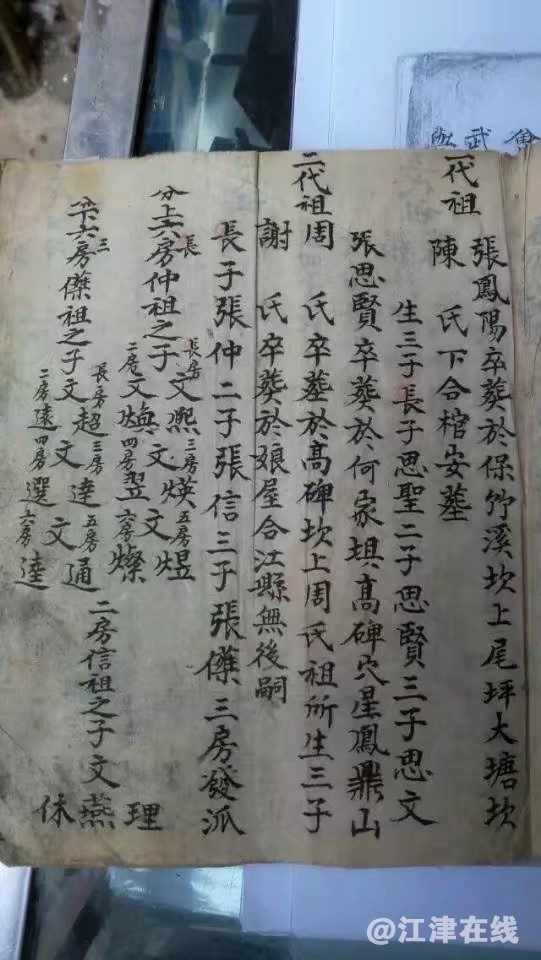 一代祖
張鳳陽卒葬於保竹溪坎上尾坪大塘坎
陳 氏下合棺安墓
生三子長子思聖二子思賢三子思文
張思賢卒葬於何家垻高碑穴星鳳鼎山
二代祖周 氏卒墓於高碑坎上周氏祖所生三子
謝 氏卒葬於娘屋合江縣無後嗣
長子張仲二子張信三子張傑三房發派
長
分十六房仲祖之子
長房文熙三房文煐五房文煜
二房文煥四房文翌六房文燦
二房信祖之子文
理
燕
休
三
分十六房傑祖之子
長房文超三房文達五房文通
二房遠四房選六房達
武
@江津在线